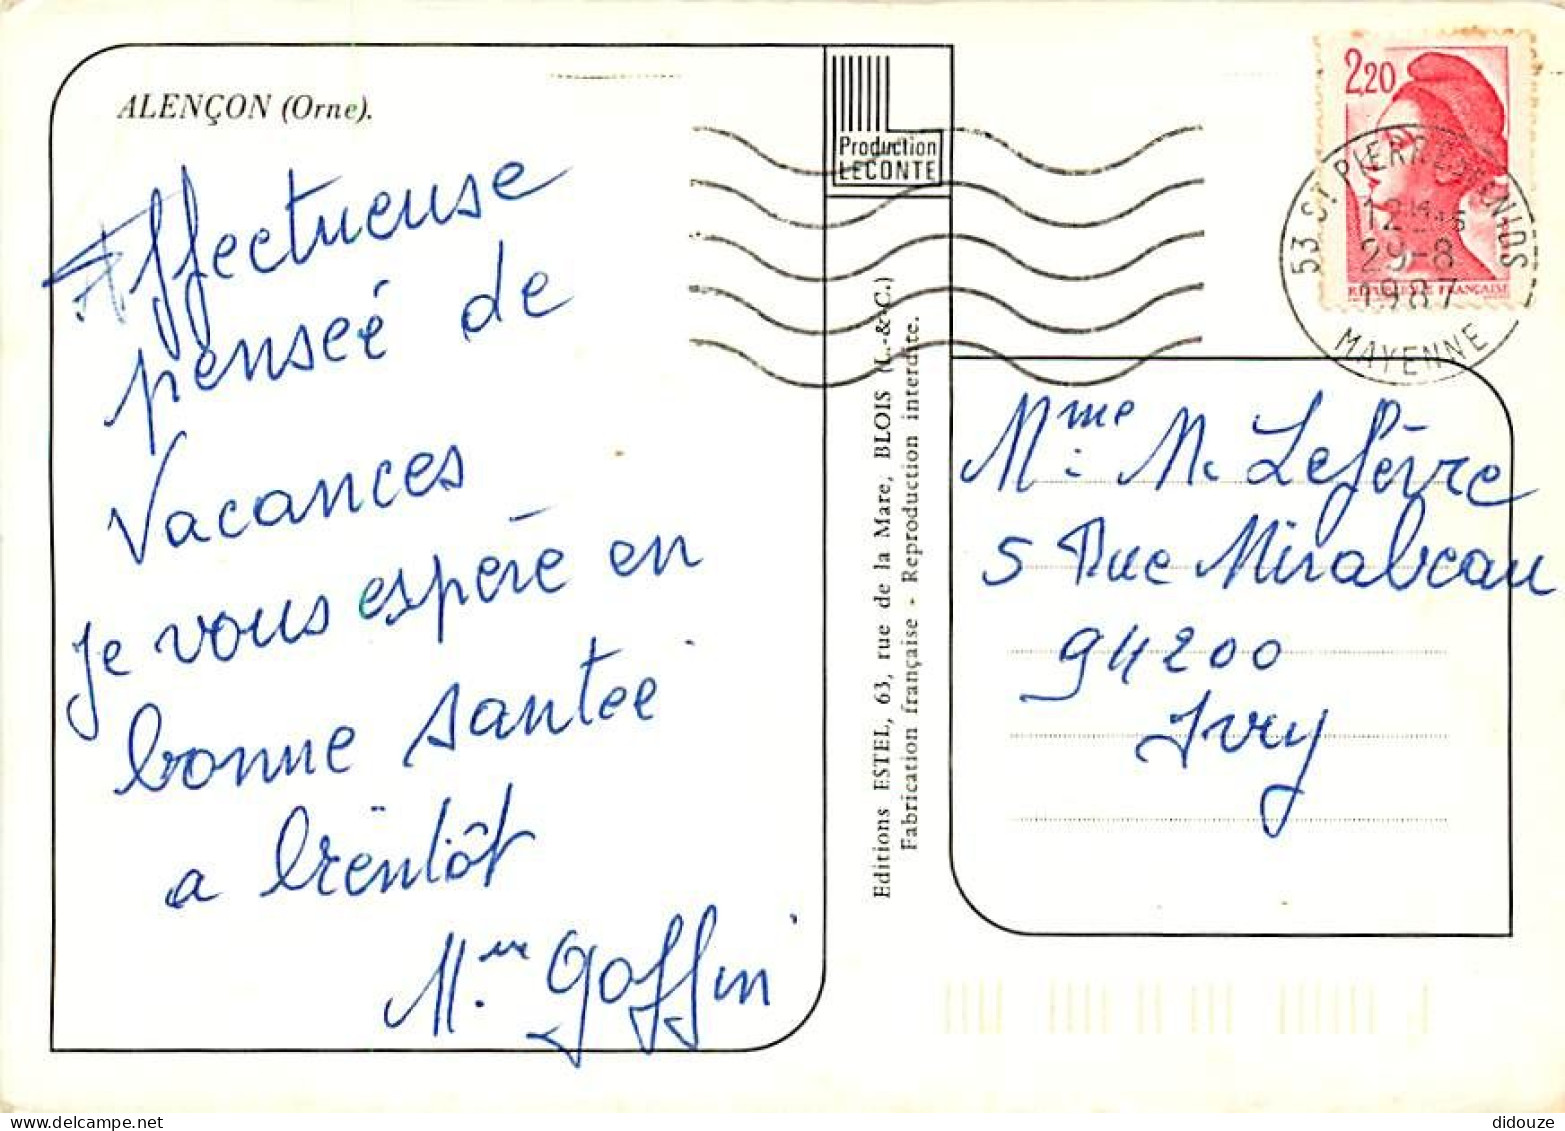 ALENÇON (Orne).
Affectueuse
penseé de
Vacances
je vous espère en
bonne santeé
a bientôt
Mme Goffin
Production
LECONTE
Editions ESTEL, 63, rue de la Mare, BLOIS (L.-&-C.)
Fabrication française - Reproduction interdite.
2,20
REPUBLIQUE FRANÇAISE
53 ST PIERRE DES NIDS
12H45
29-8
1987
MAYENNE
Mme M. Lefèvre
5 Rue Mirabeau
94200
Ivry
didouze